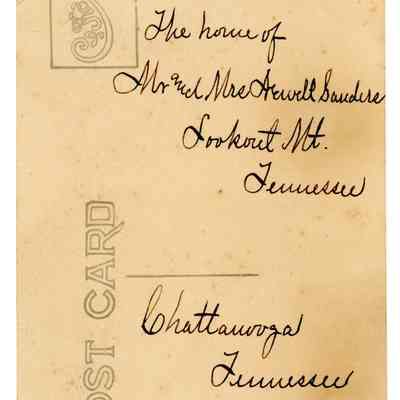 The home of
Mr and Mrs Newell Sanders
Lookout Mt.
Tennessee
Chattanooga
Tennessee
OST CARD